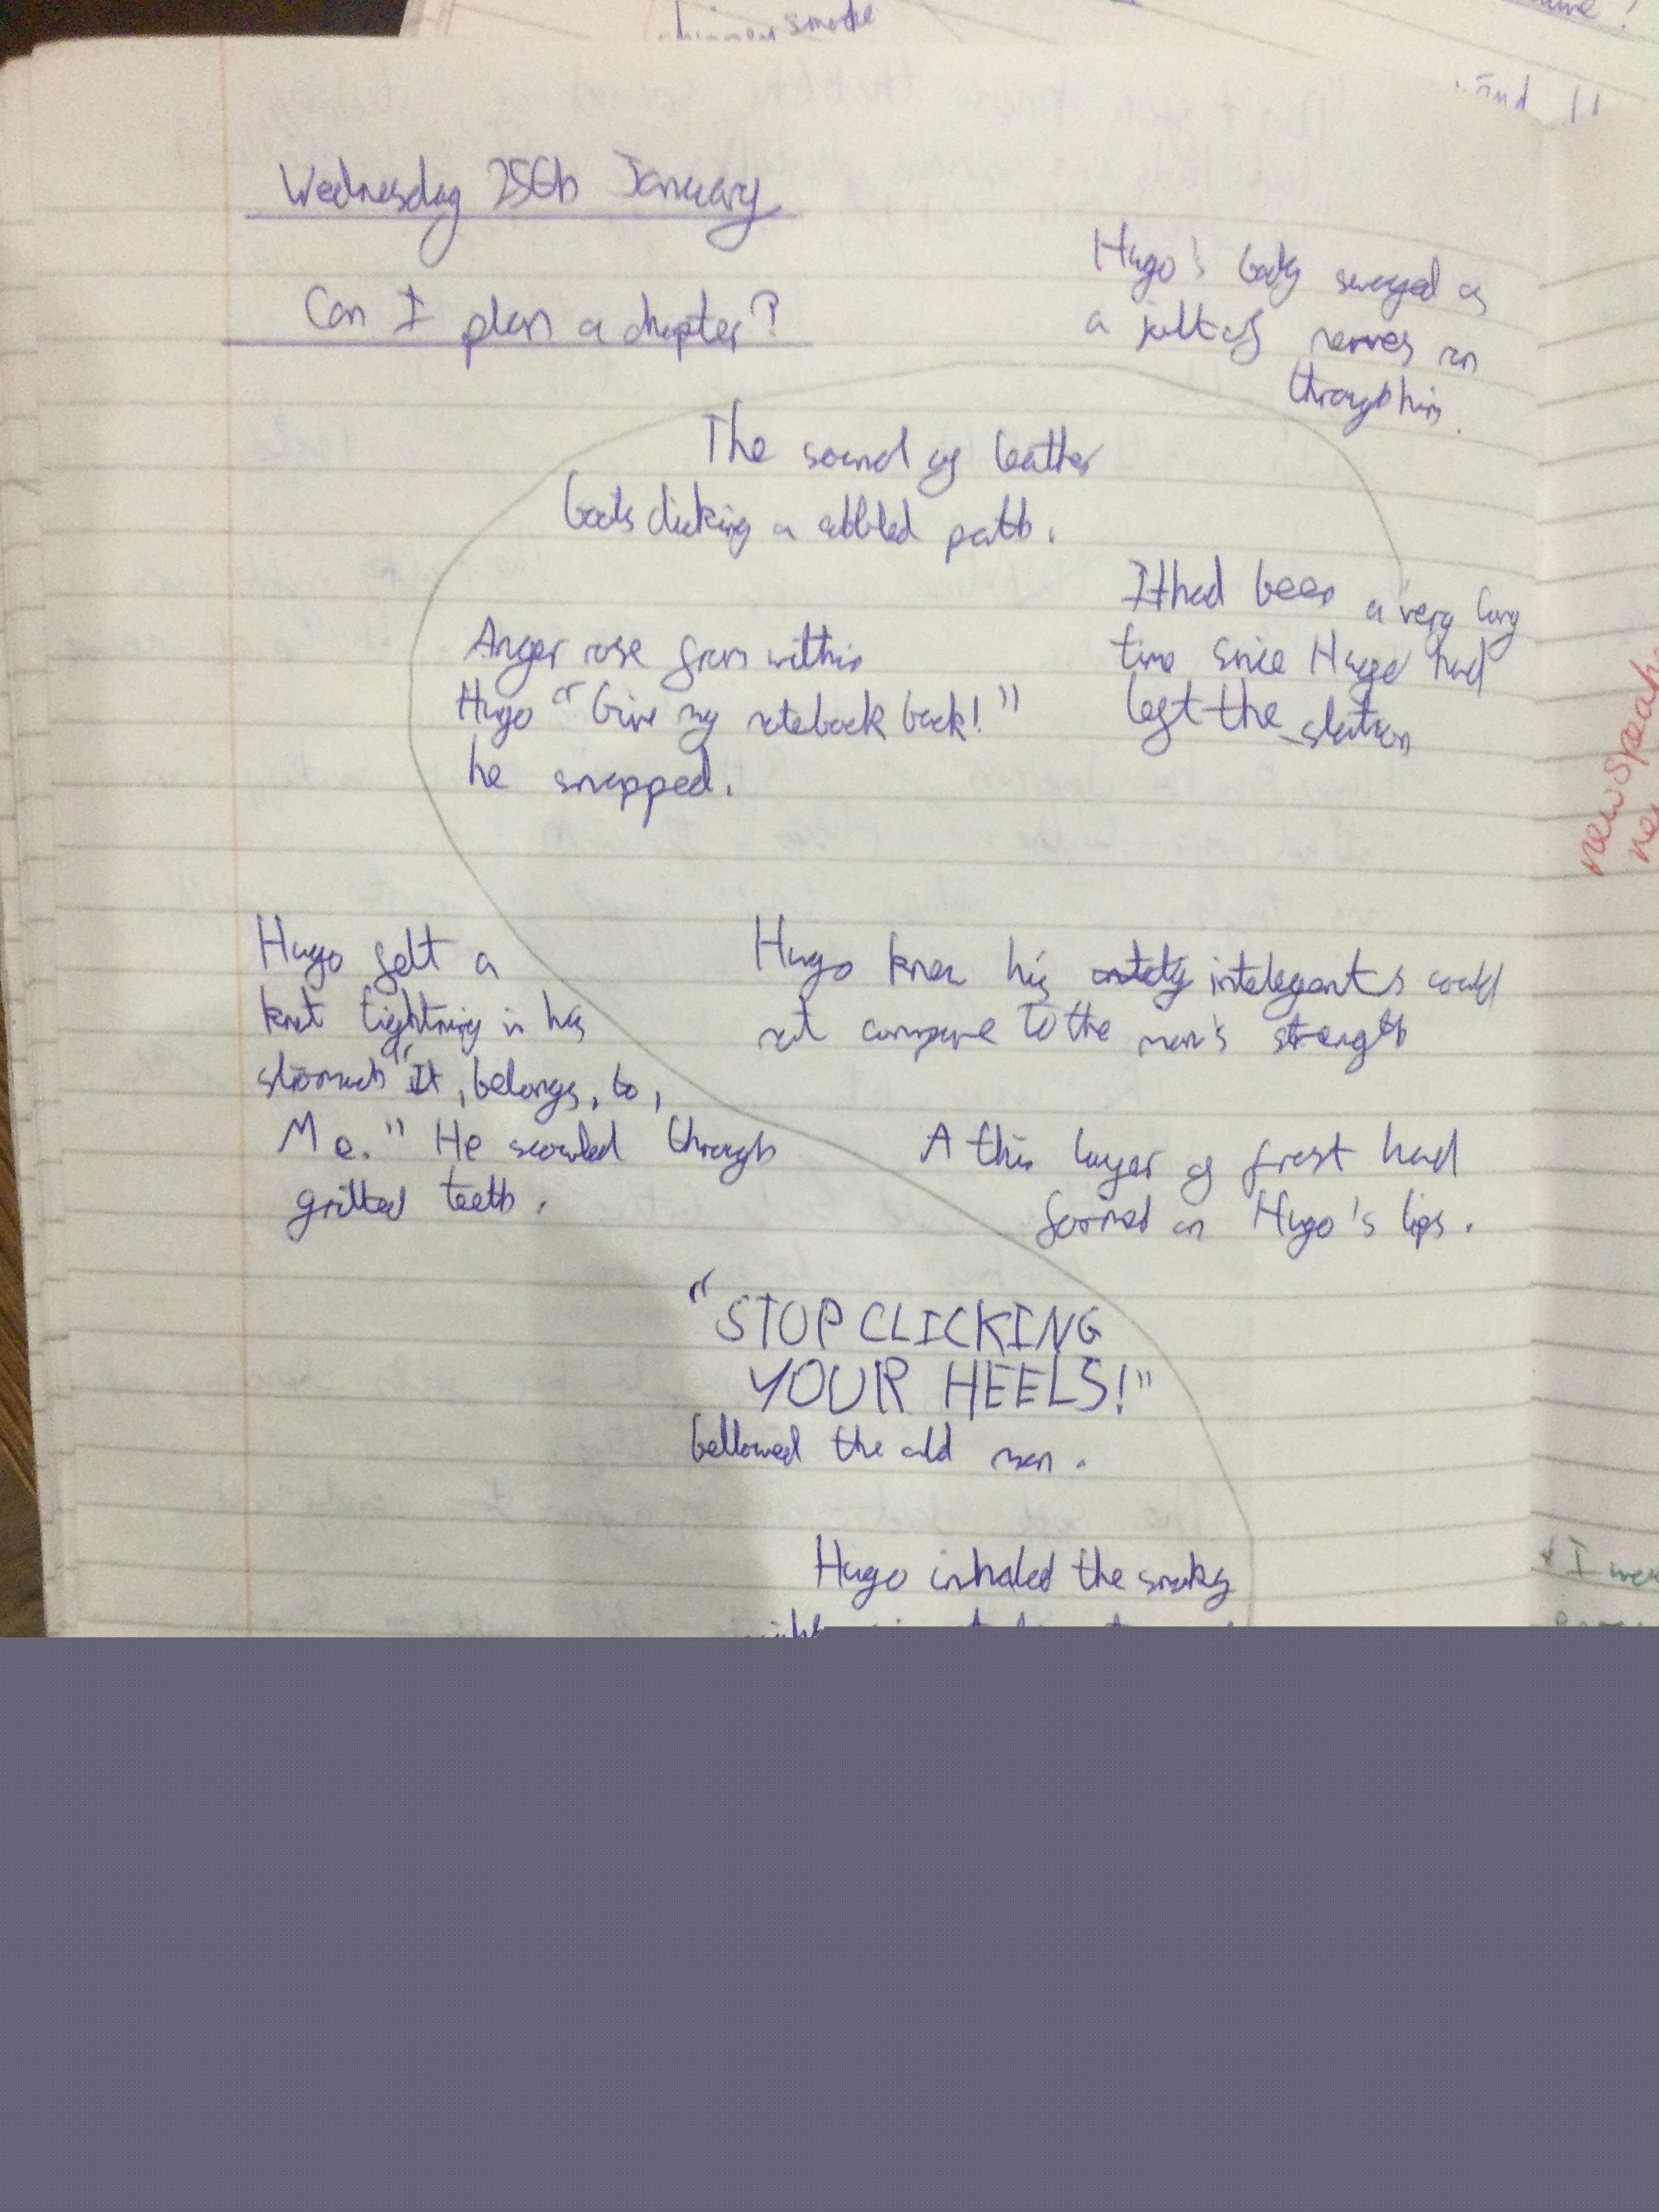 smoke
Wednesday 25th January
Can I plan a chapter?
Hugo's body swayed as
a jolt of nerves ran
through him.
The sound of leather
boots clicking a cobbled path.
It had been a very long
time since Hugo had
left the station
Anger rose from within
Hugo "Give my notebook back!"
he snapped.
newspeak
Hugo felt a
knot tightning in his
stomach "It, belongs, to,
Me." He scowled through
gritted teeth.
Hugo knew his intelegants could
not compare to the man's strength
A thin layer of frost had
formed on Hugo's lips.
"STOP CLICKING
YOUR HEELS!"
bellowed the old man.
Hugo inhaled the smoky
I